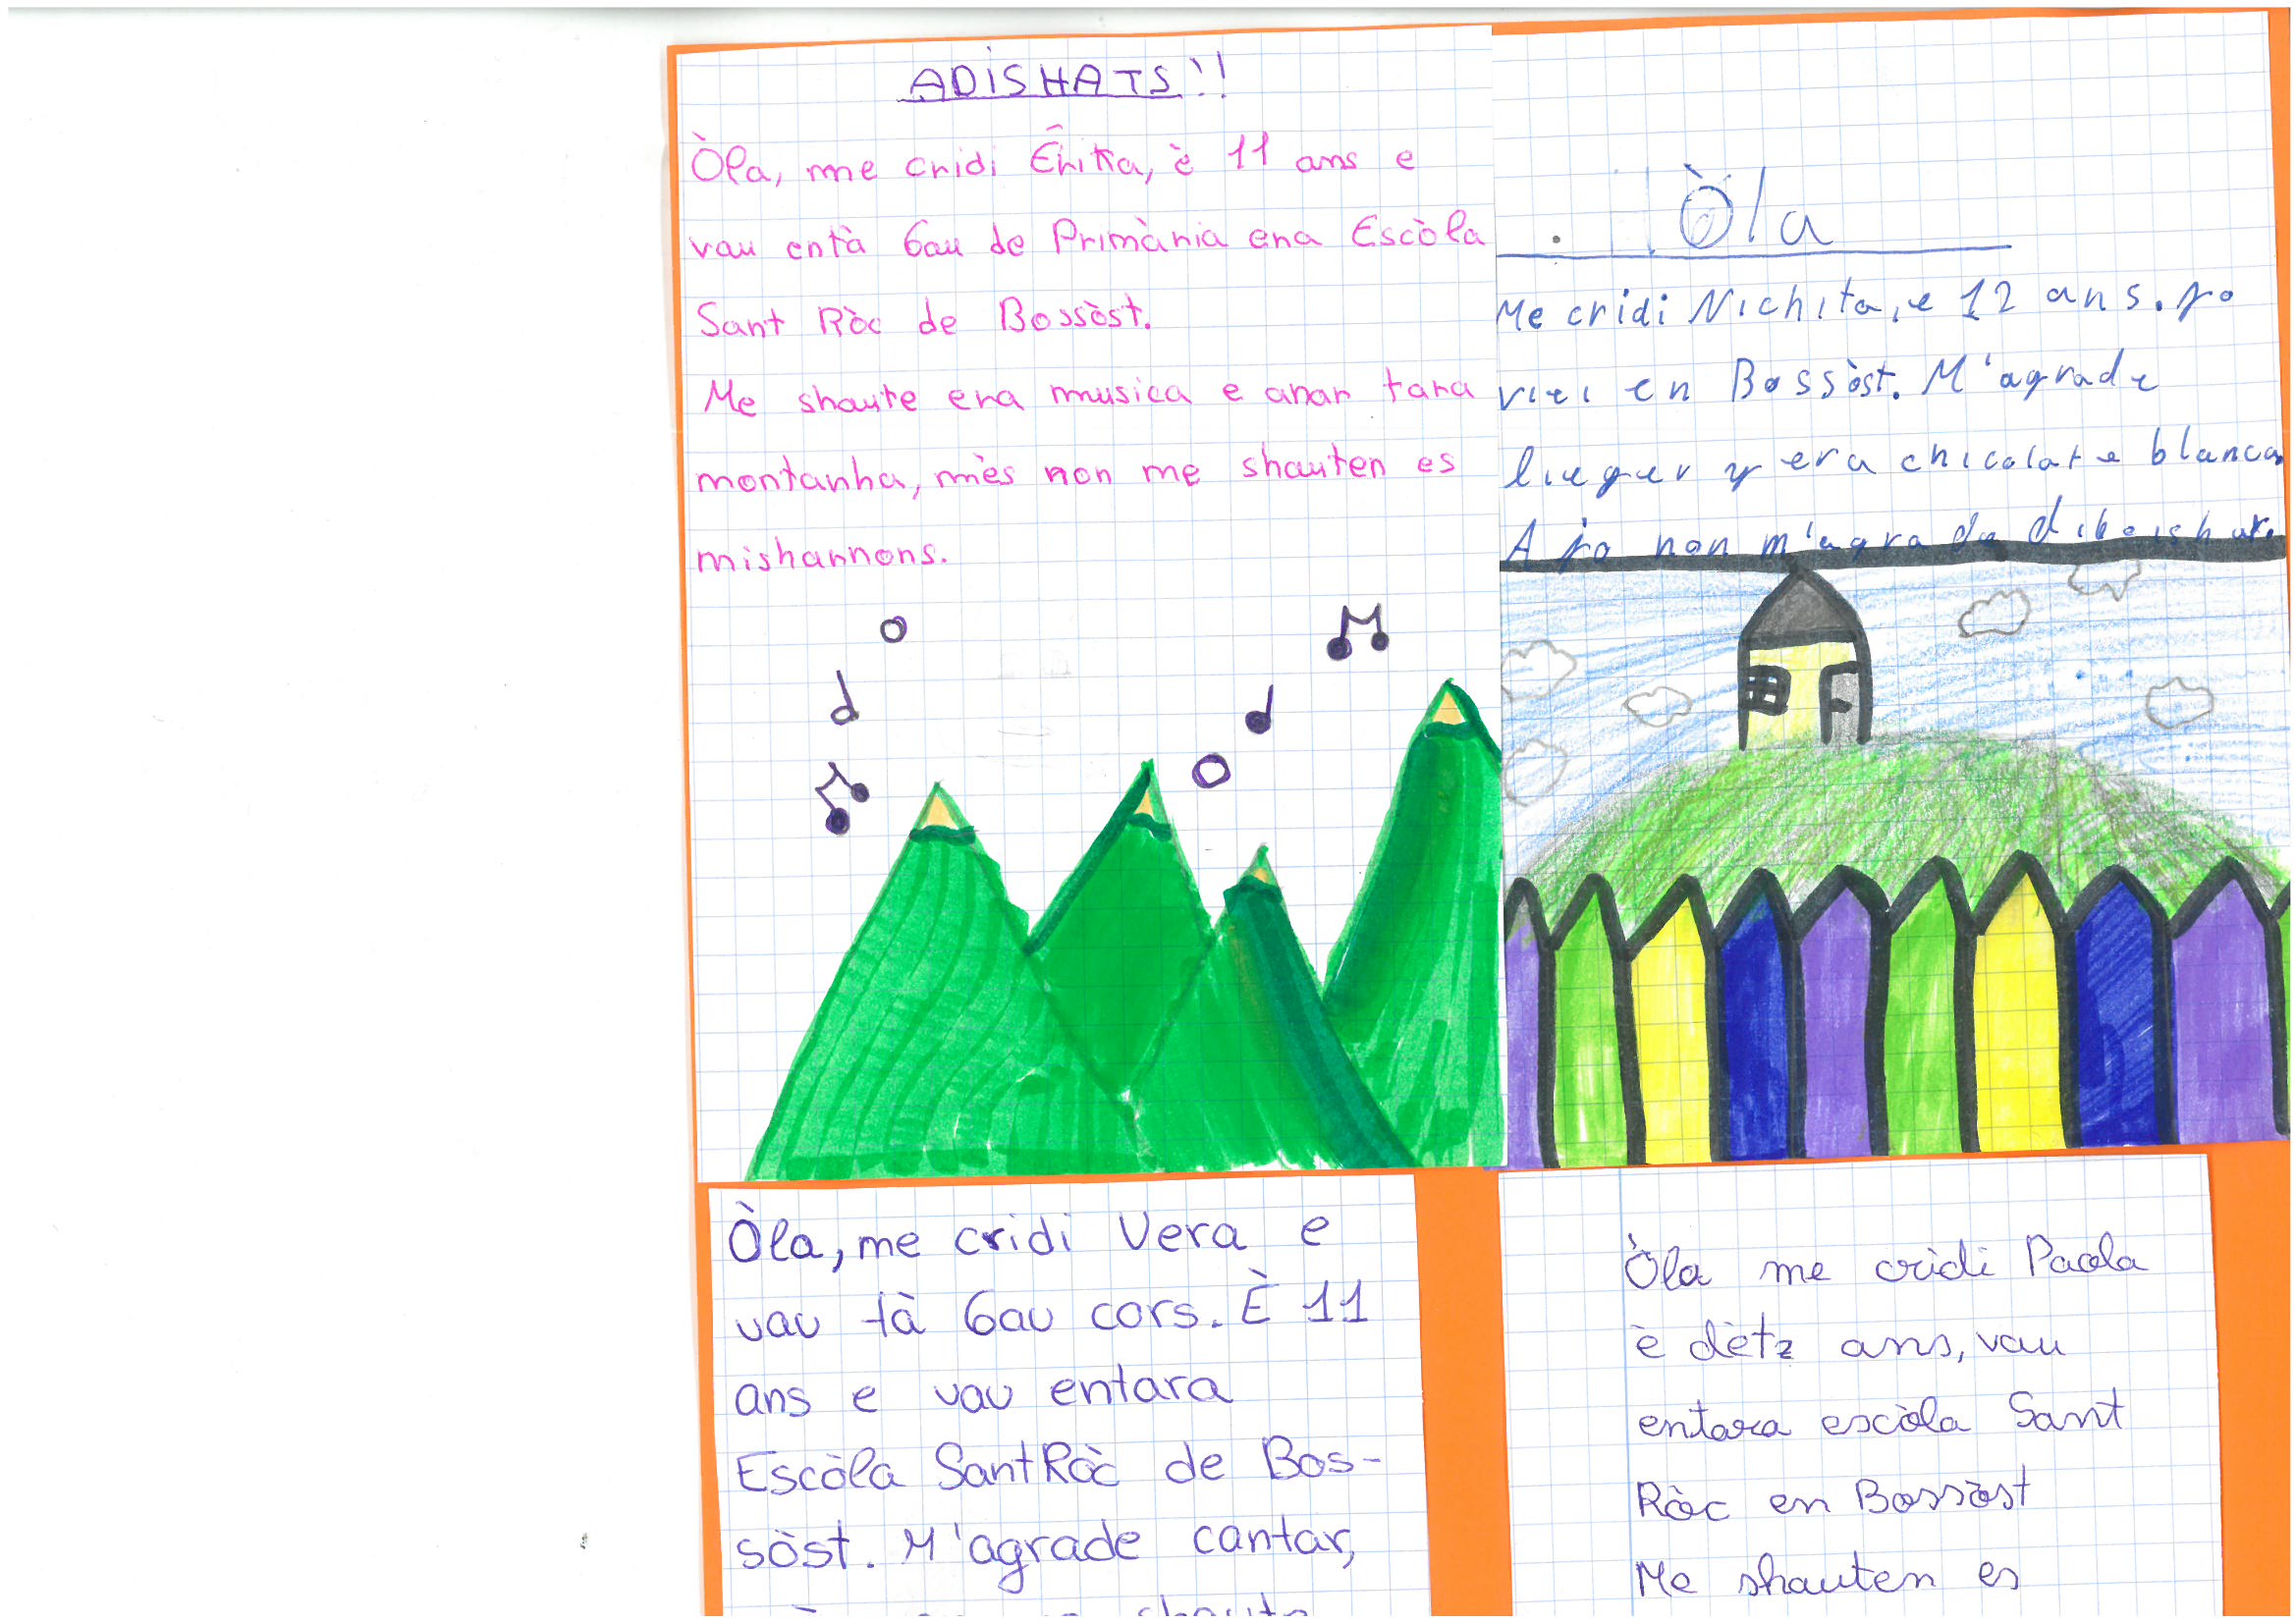 ADISHATS!!
Òla, me cridi Èrika, è 11 ans e
vau entà 6au de Primària ena Escòla
Sant Ròc de Bossòst.
Me shaute era musica e anar tara
montanha, mès non me shauten es
misharnons.
Òla
Me cridi Nichita, e 12 ans. Jo
viei en Bossòst. M'agrade
lieger y era chicolate blanca
A jo non m'agrada diboishar.
Òla, me cridi Vera e
vau tà 6au cors. È 11
ans e vau entara
Escòla Sant Ròc de Bos-
sòst. M'agrade cantar,
Òla me cridi Paola
è dètz ans, vau
entara escòla Sant
Ròc en Bossòst
Me shauten es